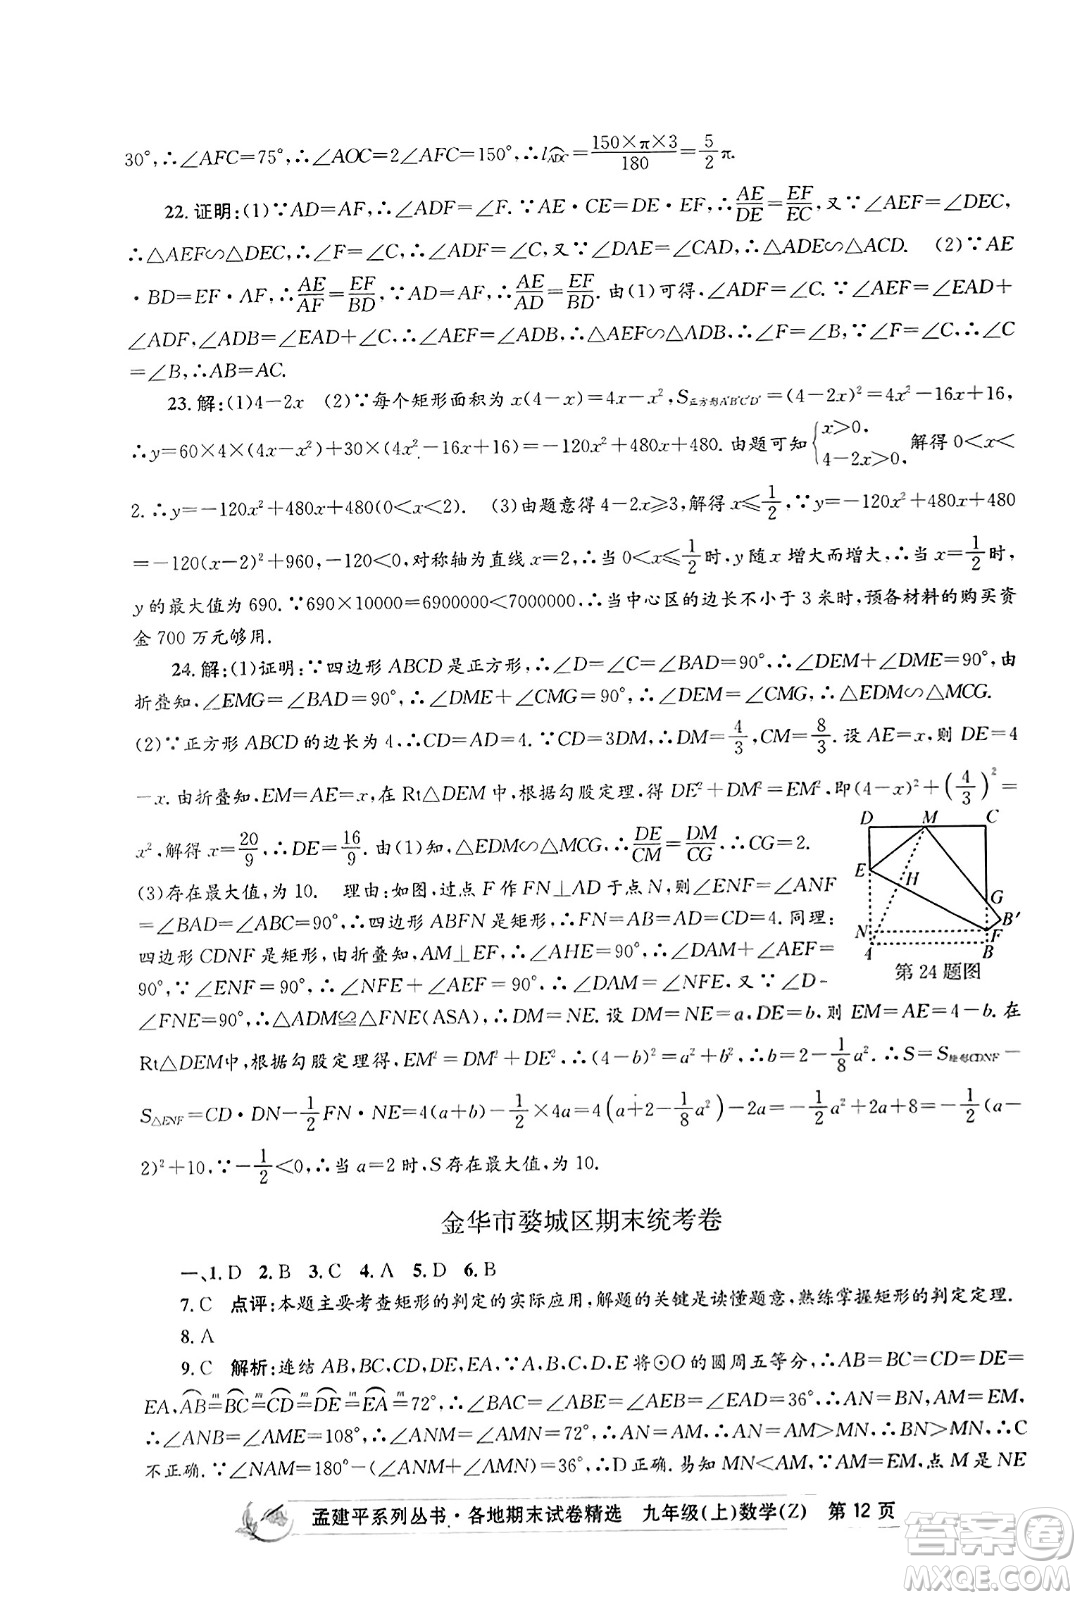 30°,∴∠AFC=75°,∴∠AOC=2∠AFC=150°,∴l⌒ADC=150×π×3/180=5/2π.
22.证明:(1)∵AD=AF,∴∠ADF=∠F.∵AE·CE=DE·EF,∴AE/DE=EF/EC,又∵∠AEF=∠DEC,
∴△AEF∽△DEC,∴∠F=∠C,又∵∠DAE=∠CAD,∴△ADE∽△ACD. (2)∵AE
·BD=EF·AF,∴AE/AF=EF/BD,∵AD=AF,∴AE/AD=EF/BD.由(1)可得,∠ADF=∠F=∠C.∵∠AEF=∠EAD+
∠ADF,∠ADB=∠EAD+∠C,∴∠AEF=∠ADB,∴△AEF∽△ADB,∴∠F=∠B,∵∠F=∠C,∴∠C
=∠B,∴AB=AC.
23.解:(1)4-2x (2)∵每个矩形面积为x(4-x)=4x-x²,S正方形A'B'C'D'=(4-2x)²=4x²-16x+16,
∴y=60×4×(4x-x²)+30×(4x²-16x+16)=-120x²+480x+480.由题可知{x>0, 4-2x>0,解得0<x<
2.∴y=-120x²+480x+480(0<x<2). (3)由题意得4-2x≥3,解得x≤1/2,∵y=-120x²+480x+480
=-120(x-2)²+960,-120<0,对称轴为直线x=2,∴当0<x≤1/2时,y随x增大而增大,∴当x=1/2时,
y的最大值为690.∵690×10000=6900000<7000000,∴当中心区的边长不小于3米时,预备材料的购买资
金700万元够用.
24.解:(1)证明:∵四边形ABCD是正方形,∴∠D=∠C=∠BAD=90°,∴∠DEM+∠DME=90°,由
折叠知,∠EMG=∠BAD=90°,∴∠DME+∠CMG=90°,∴∠DEM=∠CMG,∴△EDM∽△MCG.
(2)∵正方形ABCD的边长为4,∴CD=AD=4.∵CD=3DM,∴DM=4/3,CM=8/3.设AE=x,则DE=4
-x.由折叠知,EM=AE=x,在Rt△DEM中,根据勾股定理,得DE²+DM²=EM²,即(4-x)²+(4/3)²=
x²,解得x=20/9,∴DE=16/9.由(1)知,△EDM∽△MCG,∴DE/CM=DM/CG,∴CG=2.
(3)存在最大值,为10. 理由:如图,过点F作FN⊥AD于点N,则∠ENF=∠ANF
=∠BAD=∠ABC=90°,∴四边形ABFN是矩形,∴FN=AB=AD=CD=4.同理:
四边形CDNF是矩形,由折叠知,AM⊥EF,∴∠AHE=90°,∴∠DAM+∠AEF=
90°,∵∠ENF=90°,∴∠AEF+∠NFE=90°,∴∠DAM=∠NFE.又∵∠D=
∠FNE=90°,∴△ADM≌△FNE(ASA),∴DM=NE.设DM=NE=a,DE=b,则EM=AE=4-b.在
Rt△DEM中,根据勾股定理得,EM²=DM²+DE²,∴(4-b)²=a²+b²,∴b=2-1/8a².∴S=S矩形CDNF-
S△ENF=CD·DN-1/2FN·NE=4(a+b)-1/2×4a=4(a+2-1/8a²)-2a=-1/2a²+2a+8=-1/2(a-
2)²+10,∵-1/2<0,∴当a=2时,S存在最大值,为10.
D M C
E H G
N F B'
A B
第24题图
金华市婺城区期末统考卷
一、1.D 2.B 3.C 4.A 5.D 6.B
7.C 点评:本题主要考查矩形的判定的实际应用,解题的关键是读懂题意,熟练掌握矩形的判定定理.
8.A
9.C 解析:连结AB,BC,CD,DE,EA,∵A,B,C,D,E将⊙O的圆周五等分,∴AB=BC=CD=DE=
EA,⌒AB=⌒BC=⌒CD=⌒DE=⌒EA=72°,∴∠BAC=∠ABE=∠AEB=∠EAD=36°,∴AN=BN,AM=EM,
∴∠ANB=∠AME=108°,∴∠ANM=∠AMN=72°,∴AN=AM,∵AM>MN,∴AN>MN,∴C
不正确.∵∠NAM=180°-(∠ANM+∠AMN)=36°,∴D正确.故选C.
孟建平系列丛书·各地期末试卷精选 九年级(上)数学(Z) 第12页
答案圈
MXQE.COM